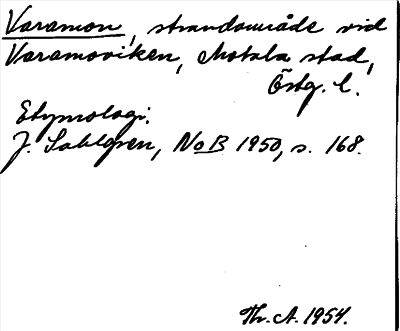 Varamon, strandområde vid
Varamoviken, Motala stad,
Östg. l.
Etymologi.
J. Sahlgren, NoB 1950, s. 168.
Th. A. 1954.